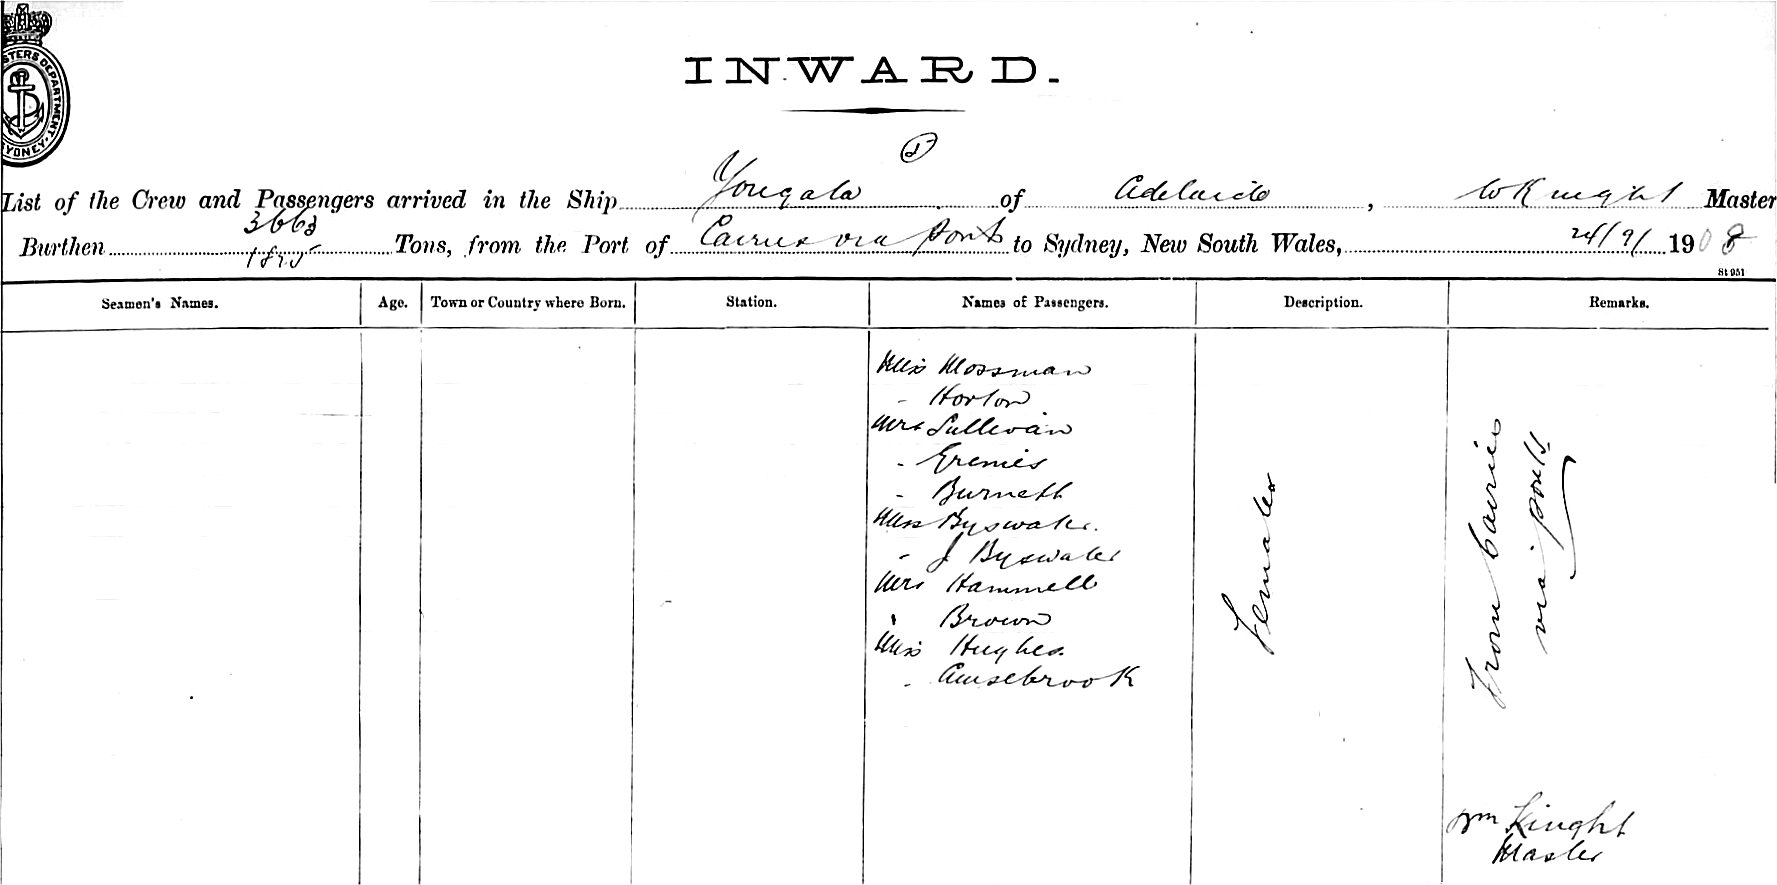 STERS DEPARTMENT. SYDNEY.
INWARD.
List of the Crew and Passengers arrived in the Ship Yongala of Adelaide, W Knight Master
3663
Burthen 1825 Tons, from the Port of Cairns via ports to Sydney, New South Wales, 24/9/ 1908
St 951
Seamen's Names. Age. Town or Country where Born. Station. Names of Passengers. Description. Remarks.
Miss Mossman
" Horton
Mrs Sullivan
" Gremes
" Burnett
Miss Byswater.
" J Byswater
Mrs Hammell
" Brown
Miss Hughes
" Ainsebrook
Females
From Cairns
via ports
Wm Knight
Master